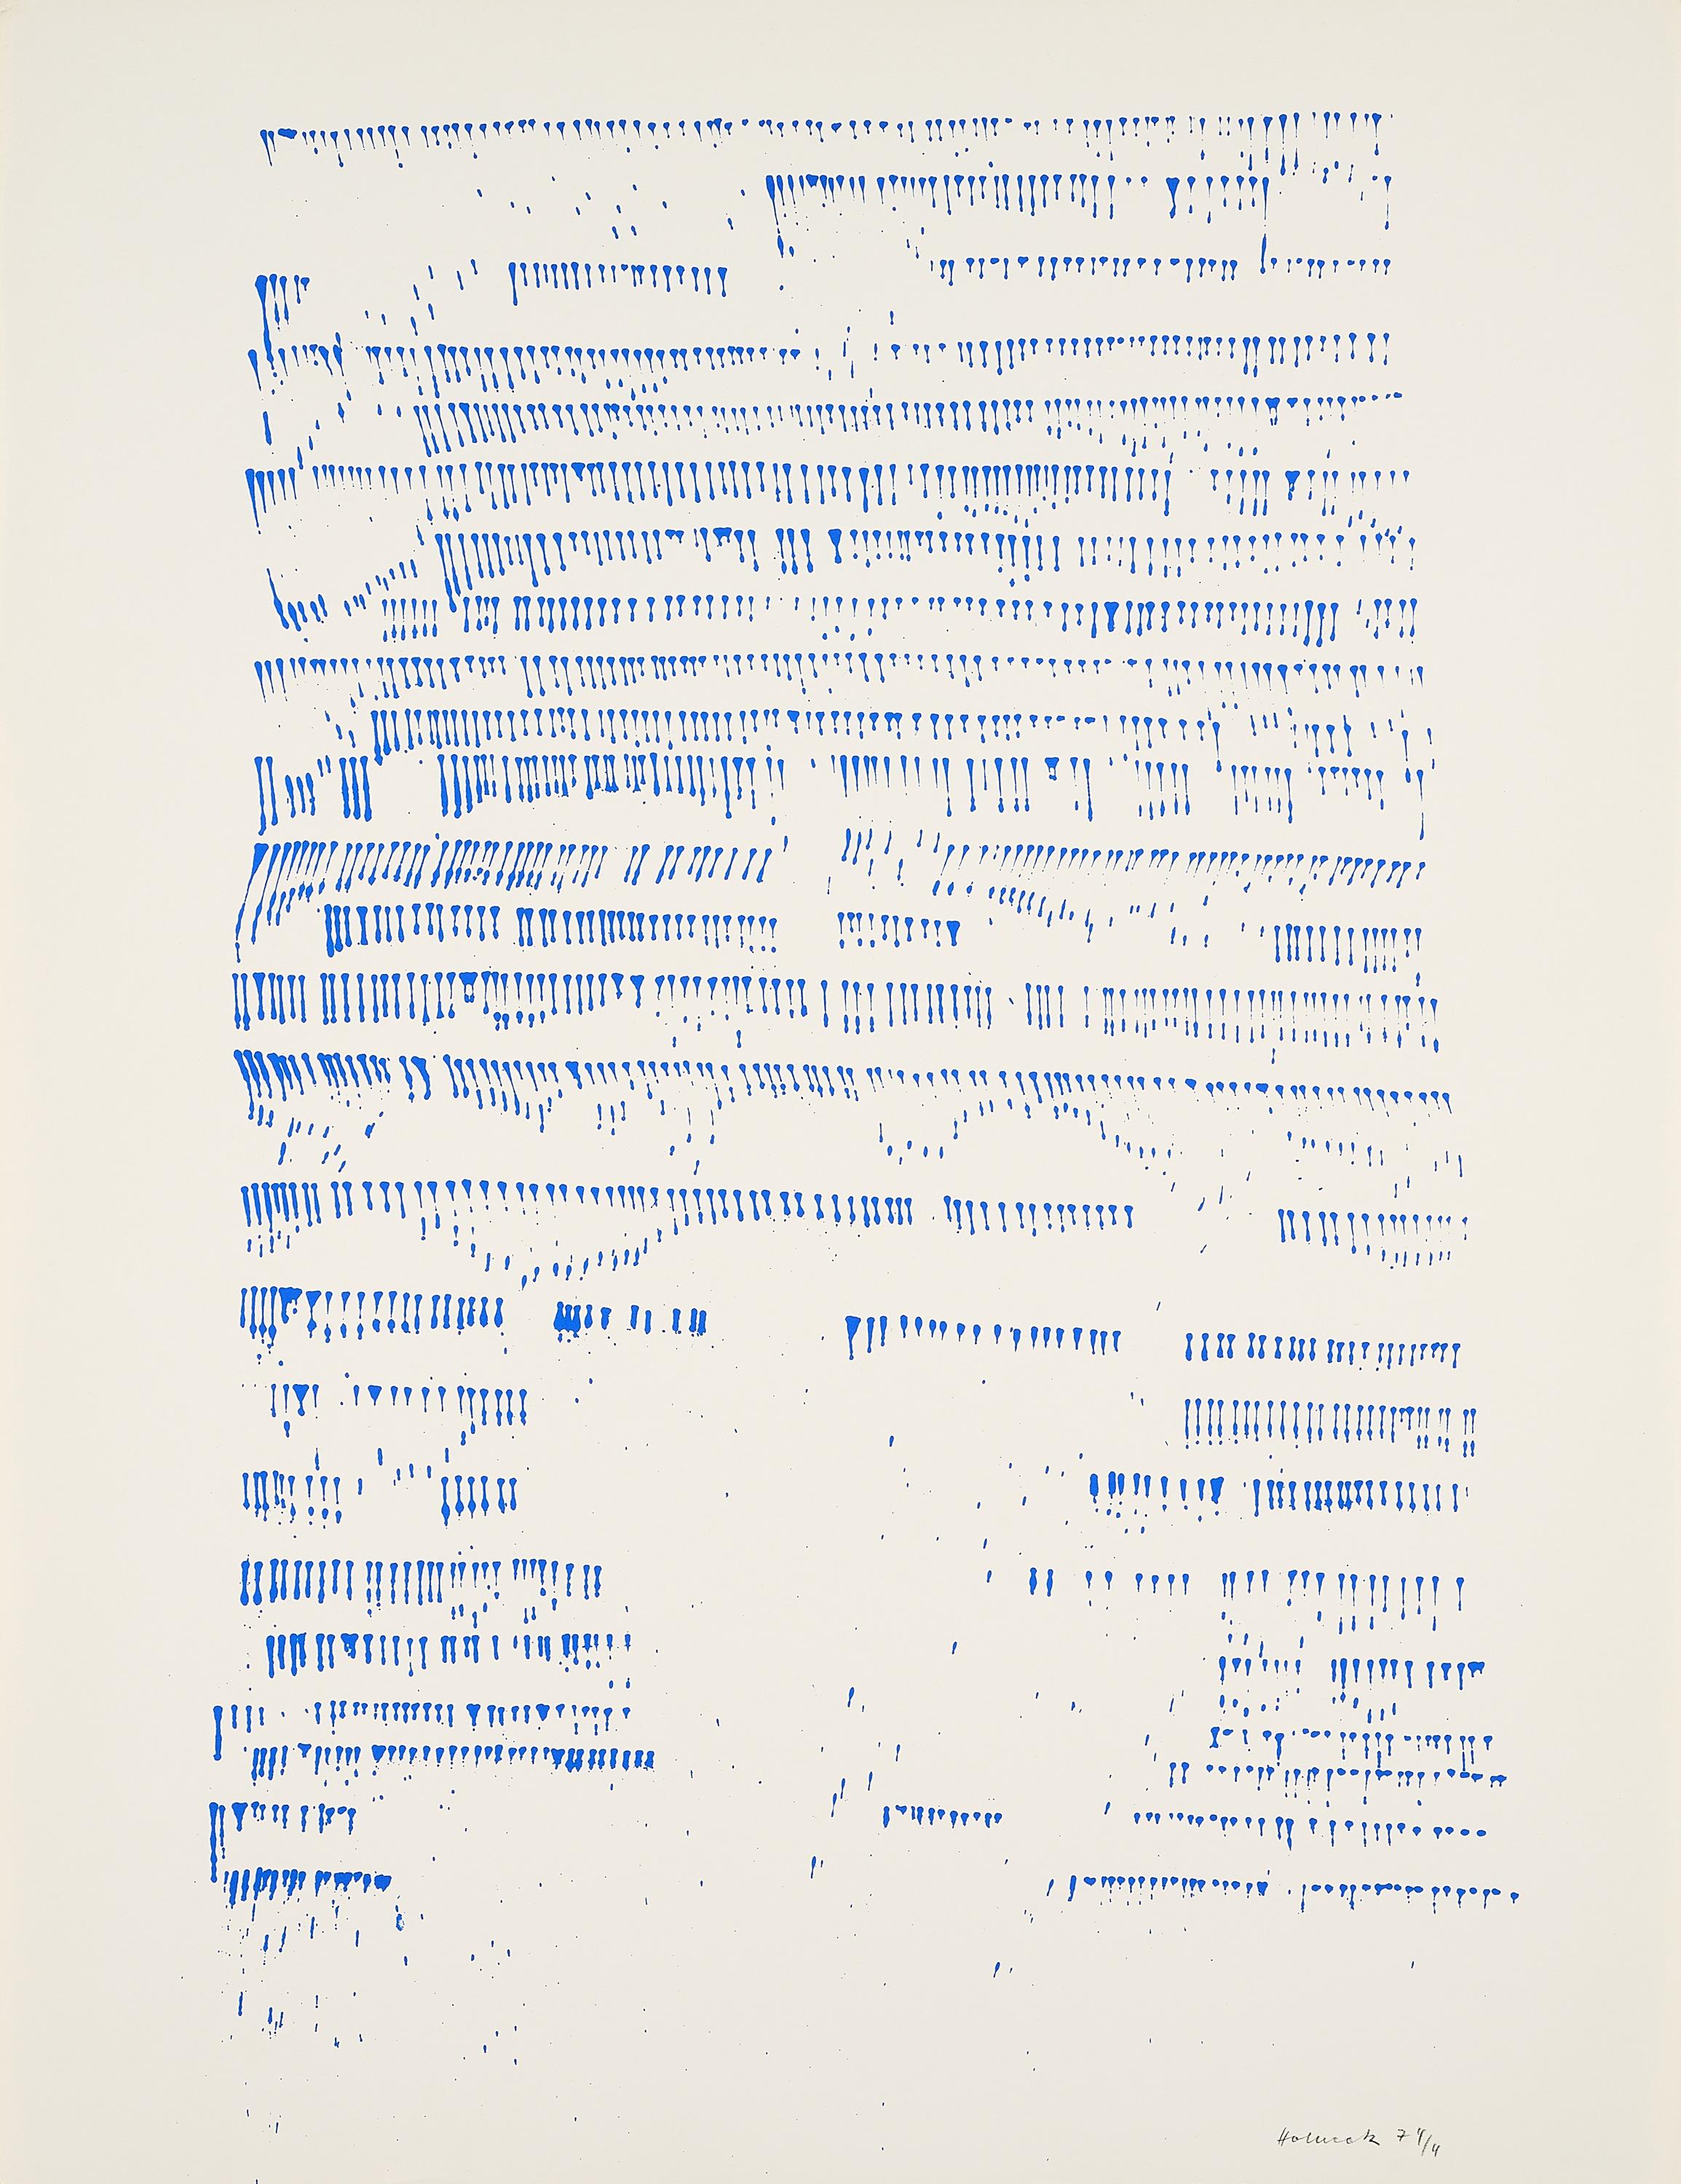 Holweck 74/4